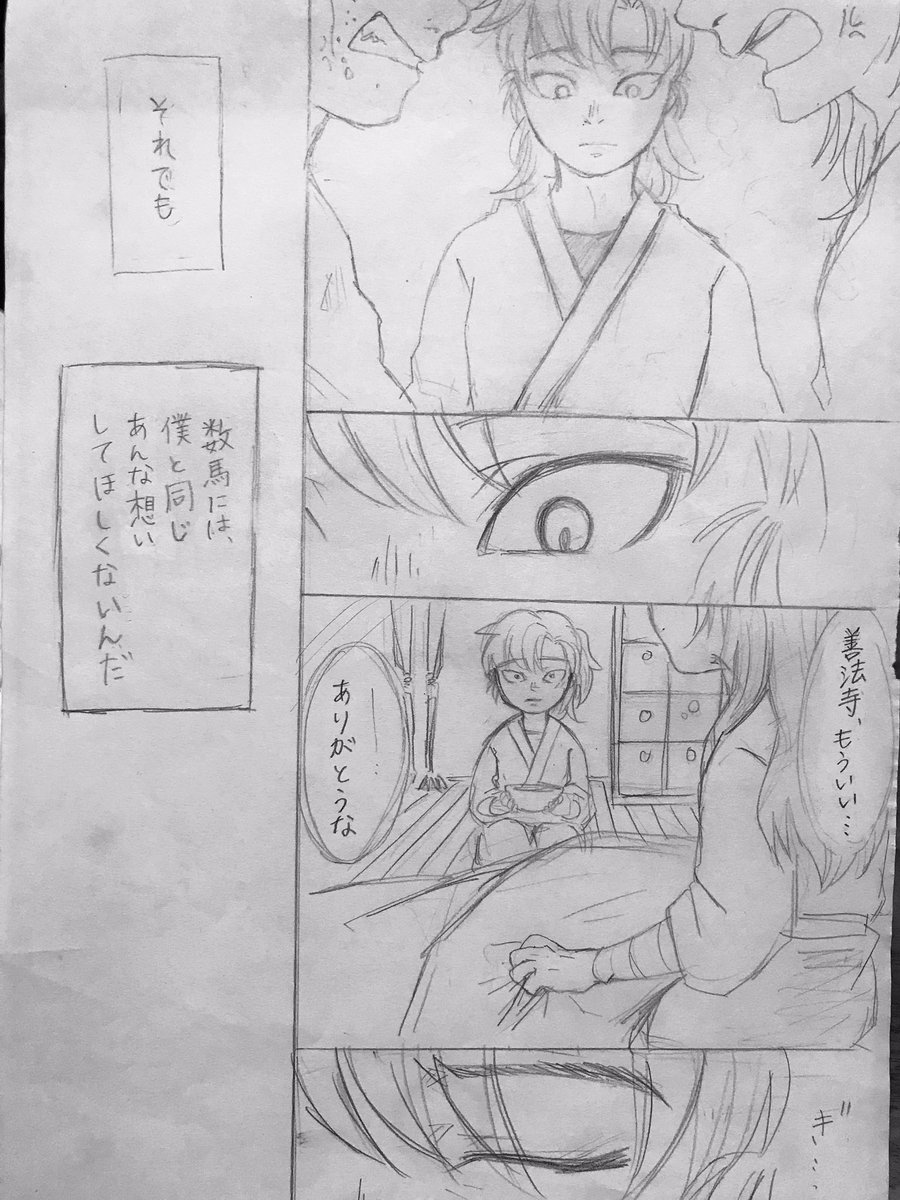 善法寺、もういい…
ありがとうな
ギ……
それでも
数馬には、
僕と同じ
あんな想い
してほしくないんだ